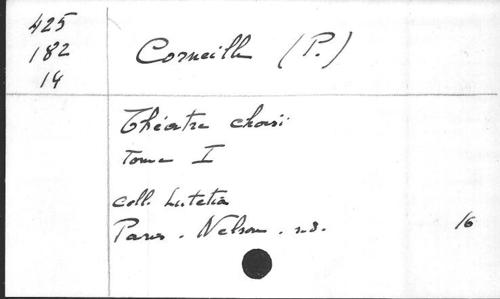 425
182
14
Corneille (P.)
Théatre choisi
Tome I
coll. Lutetia
Paris. Nelson. s.d.
16